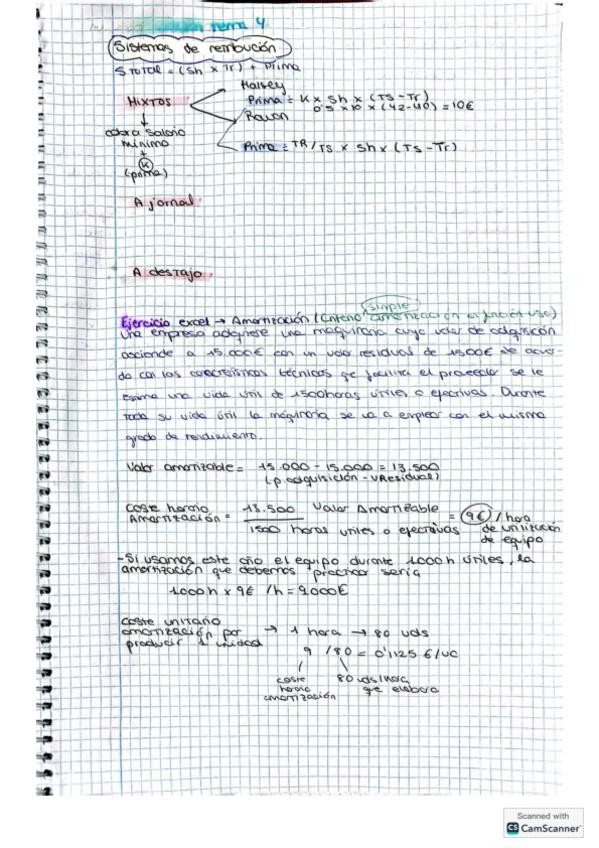 tema 4
Sistemas de retribución
S TOTAL = (Sh x Tr) + Prima
Halsey
MIXTOS
Prima = K x Sh x (TS - Tr)
0'5 x 10 x (42-40) = 10€
Rowan
cobra salario
mínimo
+
K
(prima)
Prima = TR/TS x Sh x (Ts - Tr)
A jornal
A destajo
simple
Ejercicio excel → Amortización (Criterio amortización en función uso)
Una empresa adquiere una maquinaria cuyo valor de adquisición
asciende a 15.000€ con un valor residual de 1500€ de acuer-
do con las características técnicas que facilita el proveedor se le
estima una vida útil de 1500 horas útiles o efectivas. Durante
toda su vida útil la maquinaria se va a emplear con el mismo
grado de rendimiento.
Valor amortizable = 15.000 - 15.000 = 13.500
(p. adquisición - VResidual)
Coste horario
Amortización = 13.500 Valor Amortizable = 9€ / hora
1500 horas utiles o efectivas
de utilización
de equipo
- Si usamos este año el equipo durante 1000 h útiles, la
amortización que debemos practicar sería
1000h x 9€ /h = 9000€
Coste unitario
amortización por
producir 1 unidad
→ 1 hora → 80 uds
9 /80 = 0'1125 €/UC
coste
horario
amortización
80 uds/hora
que elabora
Scanned with
CS CamScanner